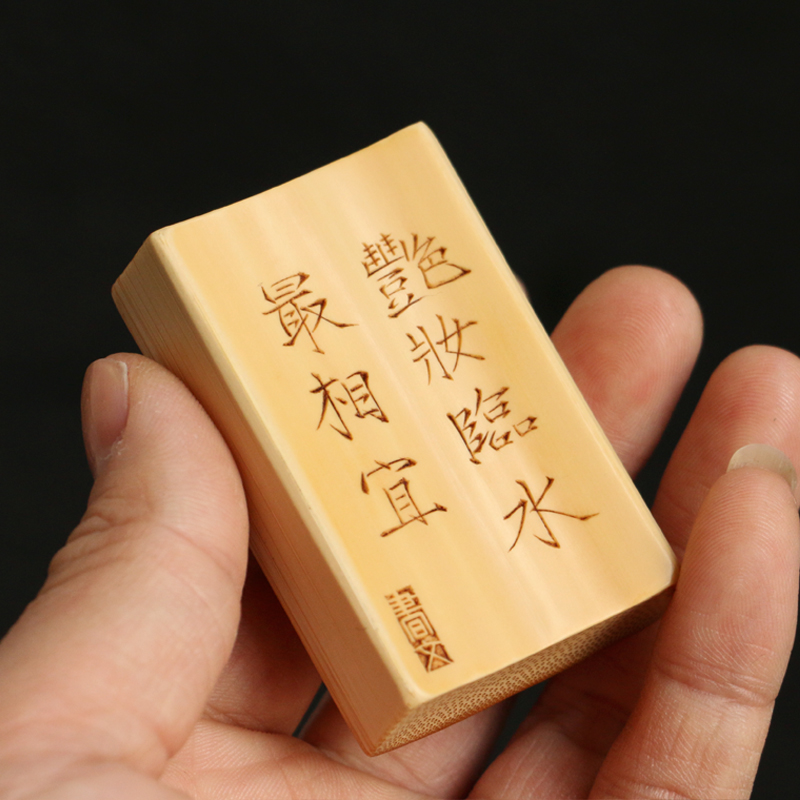 艷妝臨水
最相宜